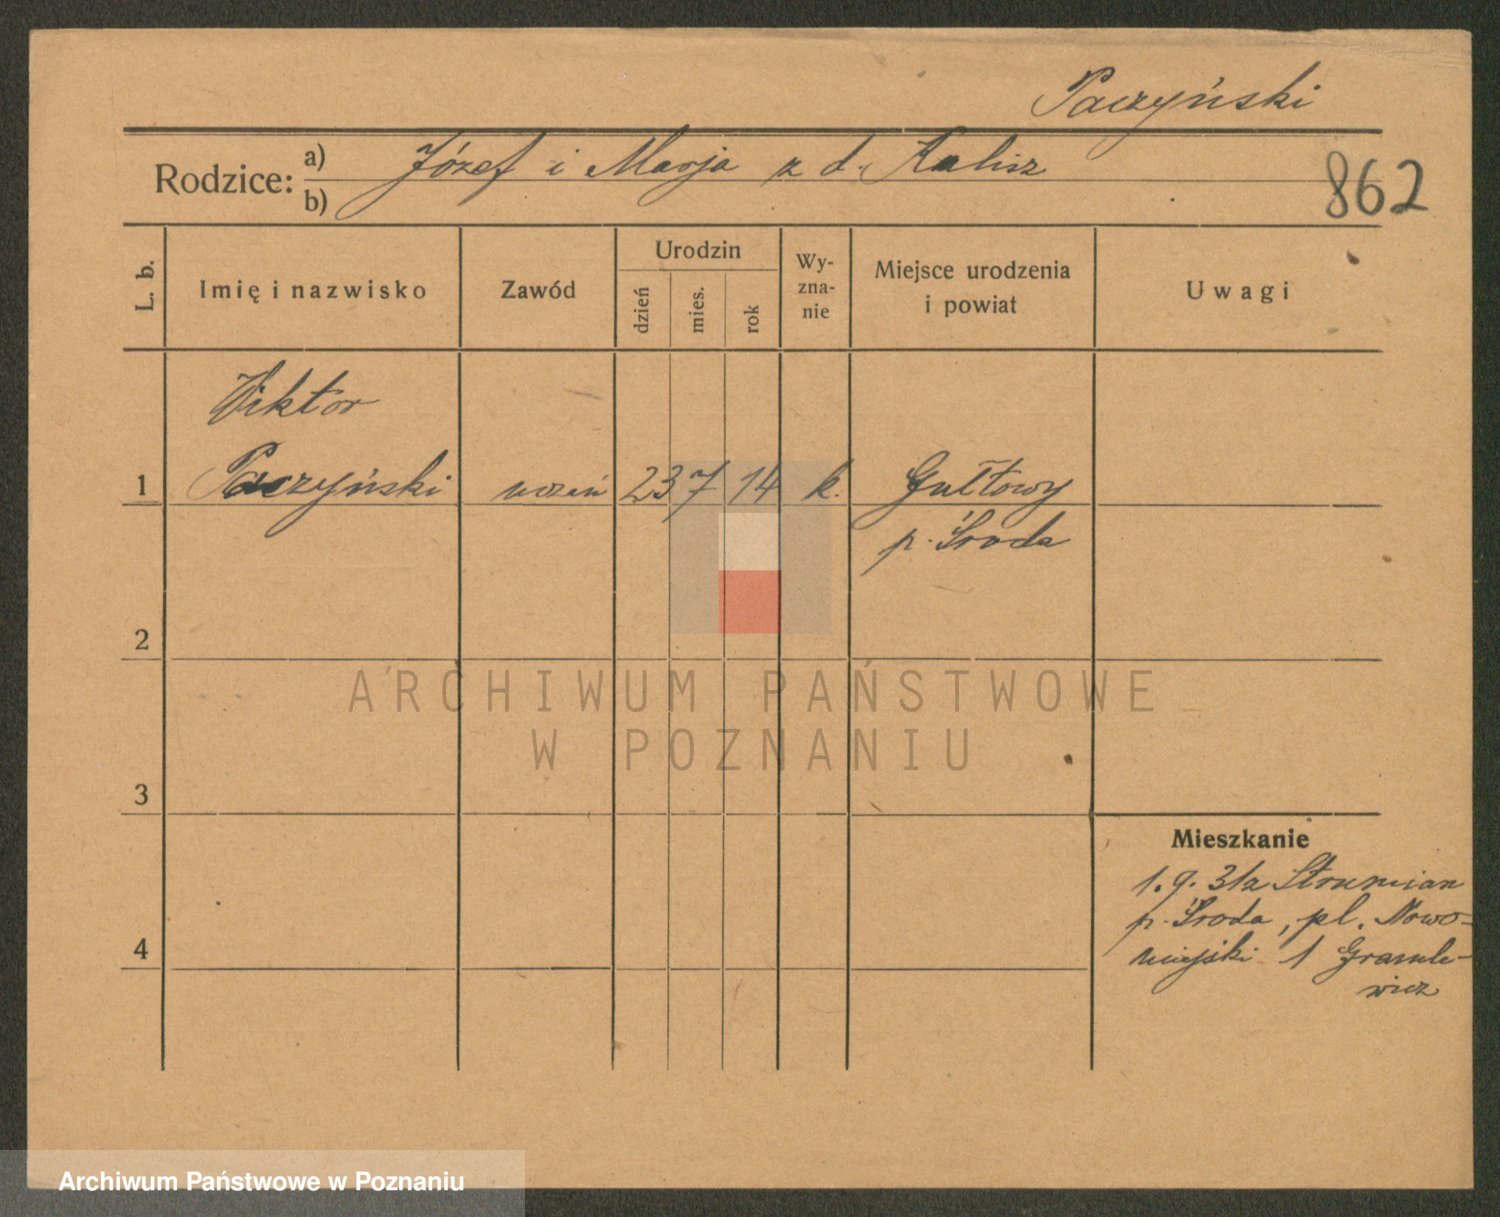 Paczyński
Rodzice: a) Józef i Marja z d. Kalisz
b)
862
L. b.
Imię i nazwisko
Zawód
Urodzin
dzień
mies.
rok
Wy-
zna-
nie
Miejsce urodzenia
i powiat
Uwagi
Wiktor
1 Paczyński uczeń 23 7 14 k. Gułtowy
p. Środa
2
ARCHIWUM PAŃSTWOWE
W POZNANIU
3
Mieszkanie
1. 9. 31 z Strumian
p. Środa, pl. Nowo-
4 miejski 1
wicz
Archiwum Państwowe w Poznaniu